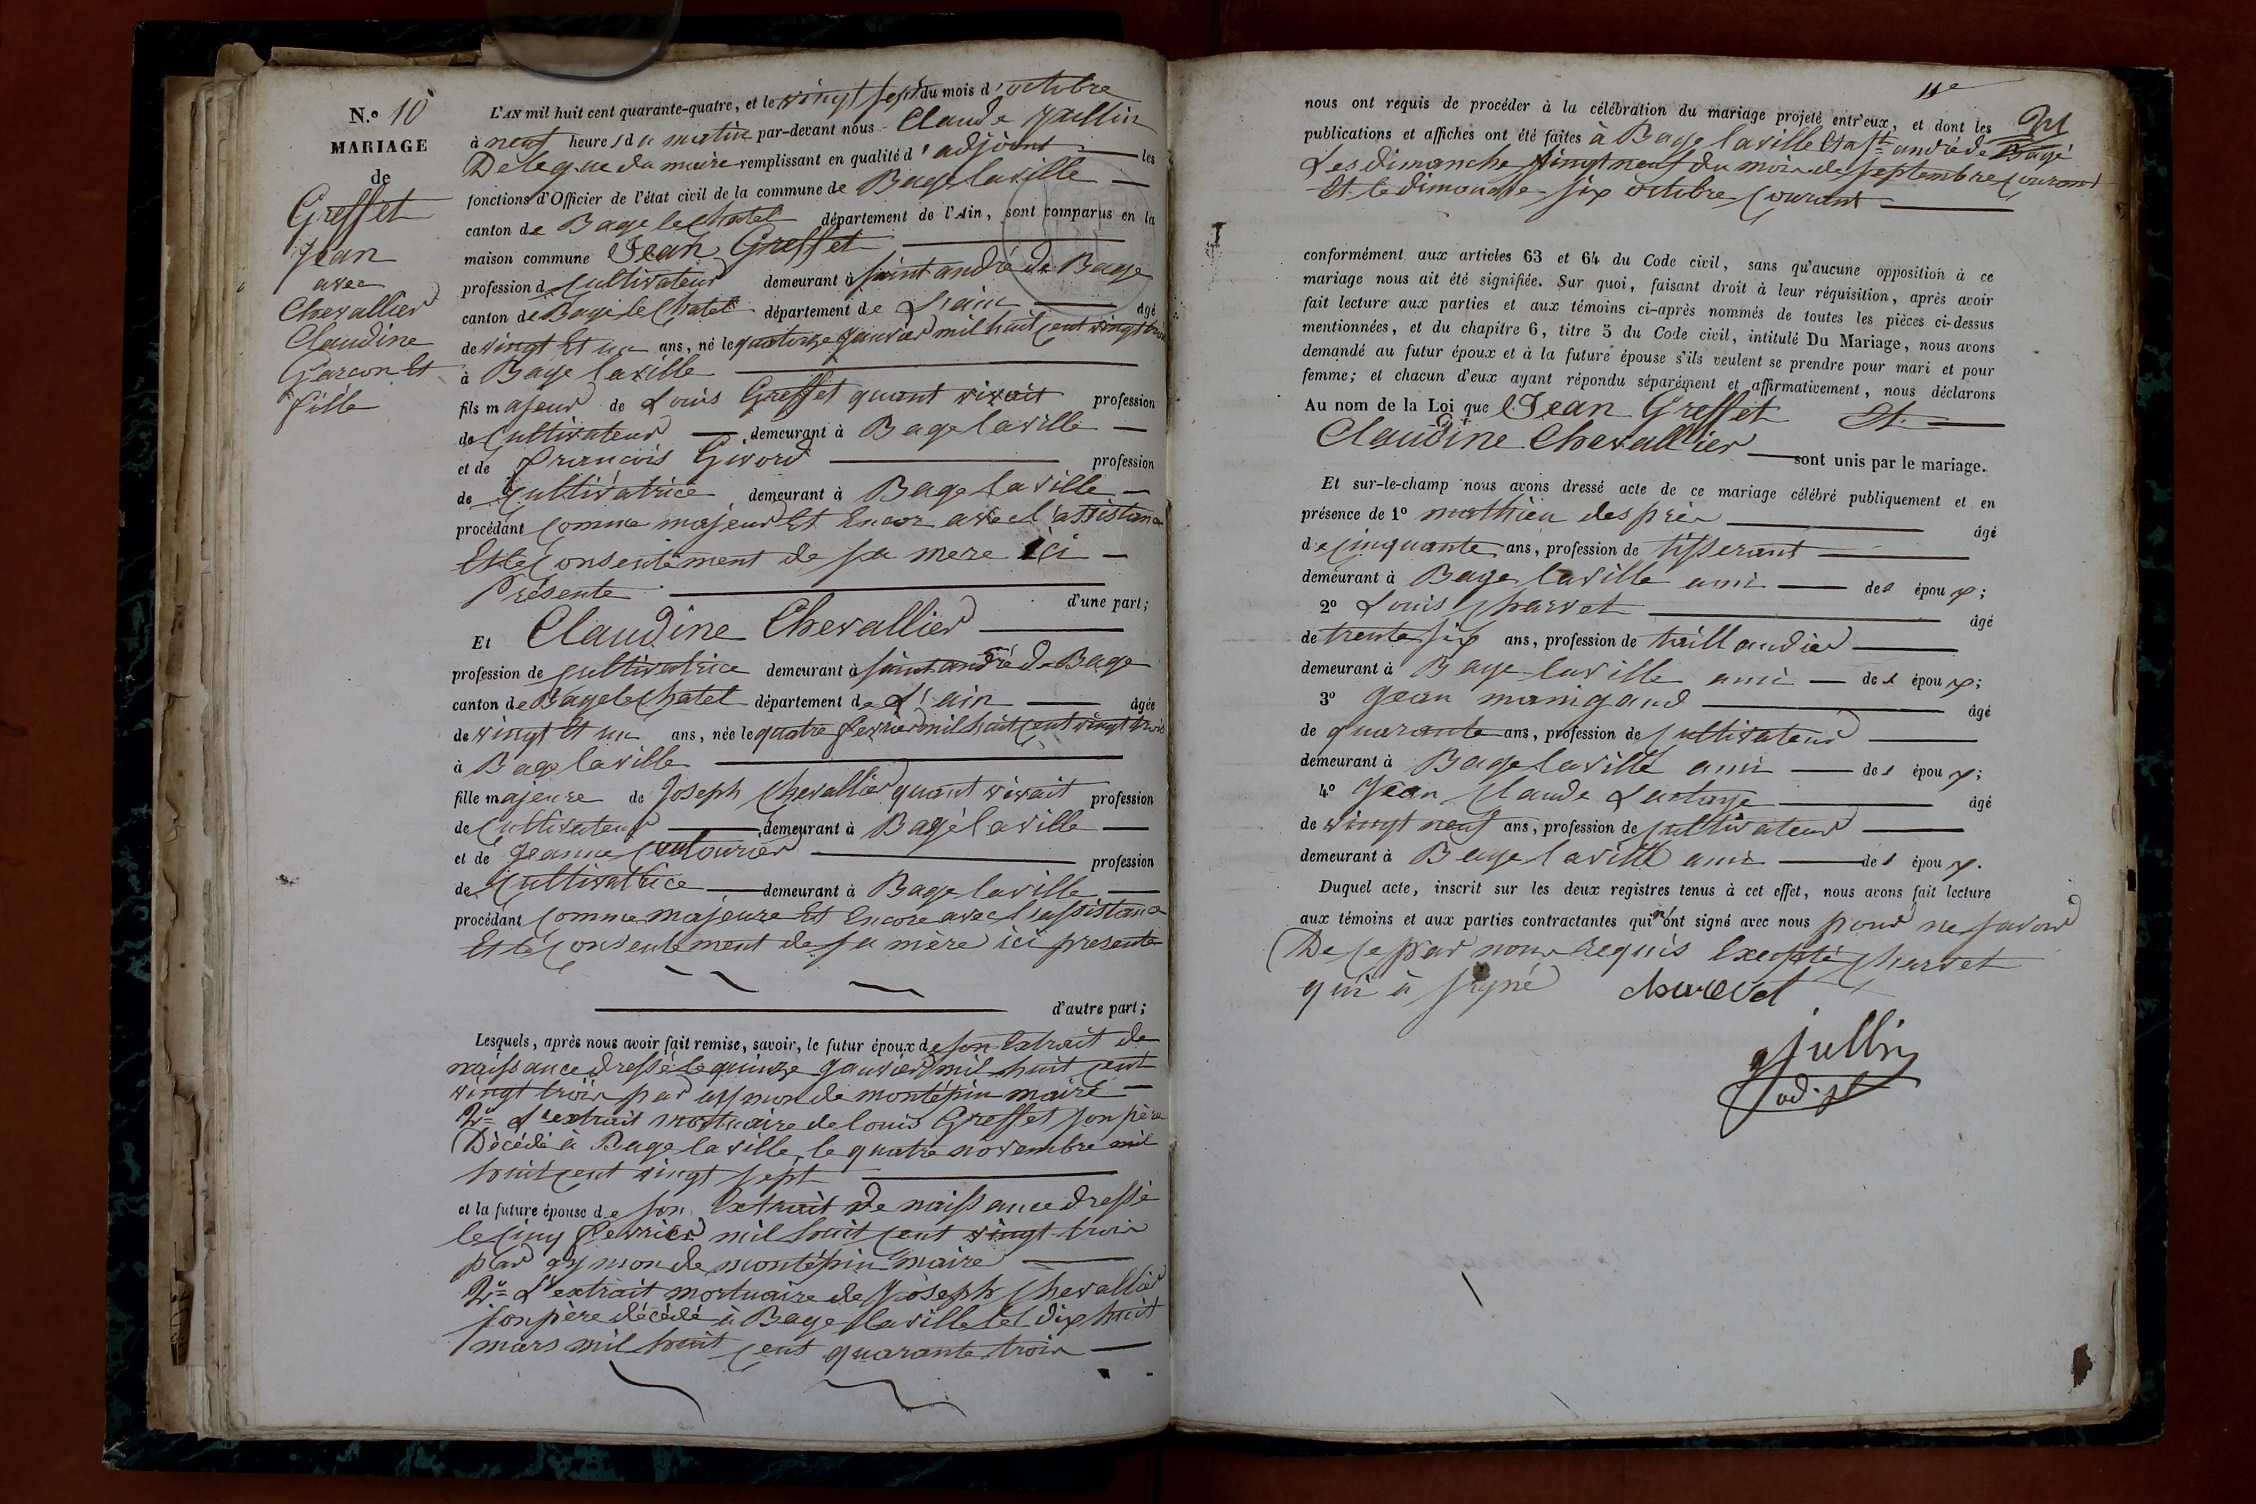 N.o 10
MARIAGE
de
Greffet
Jean
avec
Chevallier
Claudine
Garcon Et
fille
L'AN mil huit cent quarante-quatre, et le vingt sept du mois d'octobre
à neuf heures du matin par-devant nous Claude Jullin
Délégué du maire remplissant en qualité d'adjoint les
fonctions d'Officier de l'état civil de la commune de Bage laville
canton de Bage le chatel département de l'Ain, sont comparus en la
maison commune Jean Greffet
profession de cultivateur demeurant à saint andré de Bage
canton de Bage le Chatel département de L'ain âgé
de vingt Et un ans, né le quatorze janvier mil huit cent vingt trois
à Bage laville
fils majeur de Louis Greffet quant vivait profession
de Cultivateur demeurant à Bage laville
et de francois Givord profession
de cultivatrice demeurant à Bage laville
procédant comme majeur Et Encor avec l'assistance
Et le Consentement de sa mere ici
Présente d'une part;
Et Claudine Chevallier
profession de cultivatrice demeurant à saint andré de Bage
canton de Bage le Chatel département de L'ain âgée
de vingt Et un ans, née le quatre fevrier mil huit cent vingt trois
à Bage laville
fille majeure de Joseph Chevallier quant vivait profession
de Cultivateur demeurant à Bagé laville
et de Jeanne Couturier profession
de Cultivatrice demeurant à Bage laville
procédant comme majeure Et Encore avec l'assistance
Et le Consentement de sa mère ici presente
d'autre part;
Lesquels, après nous avoir fait remise, savoir, le futur époux de son Extrait de
naissance dressé le quinze janvier mil huit cent
vingt trois par aymon de montépin maire
2o L'extrait mortuaire de louis Greffet son père
Décédé à Bage laville, le quatre novembre mil
huit cent vingt sept
et la future épouse de son Extrait de naissance dressé
le cinq fevrier mil huit cent vingt trois
par aymon de montépin maire
2o L'extrait mortuaire de Joseph Chevallier
son père décédé à Bage laville le dix huit
mars mil huit cent quarante trois
11e
nous ont requis de procéder à la célébration du mariage projeté entr'eux, et dont les
publications et affiches ont été faites à Bage laville Et a st andré de Bagé
Les dimanche vingt neuf du mois de septembre courant
Et le dimanche six octobre courant
conformément aux articles 63 et 64 du Code civil, sans qu'aucune opposition à ce
mariage nous ait été signifiée. Sur quoi, faisant droit à leur réquisition, après avoir
fait lecture aux parties et aux témoins ci-après nommés de toutes les pièces ci-dessus
mentionnées, et du chapitre 6, titre 5 du Code civil, intitulé Du Mariage, nous avons
demandé au futur époux et à la future épouse s'ils veulent se prendre pour mari et pour
femme; et chacun d'eux ayant répondu séparément et affirmativement, nous déclarons
Au nom de la Loi que Jean Greffet Et
Claudine Chevallier sont unis par le mariage.
Et sur-le-champ nous avons dressé acte de ce mariage célébré publiquement et en
présence de 1o mathieu desprès âgé
de cinquante ans, profession de tisserant
demeurant à Bage laville ami des époux;
2o Louis Charvet âgé
de trente six ans, profession de taillandier
demeurant à Bage laville ami des époux;
3o Jean manigand âgé
de quarante ans, profession de cultivateur
demeurant à Bage laville ami des époux;
4o Jean Claude âgé
de vingt neuf ans, profession de cultivateur
demeurant à Bage laville ami des époux.
Duquel acte, inscrit sur les deux registres tenus à cet effet, nous avons fait lecture
aux témoins et aux parties contractantes qui n'ont signé avec nous pour ne savoir
De ce par nous requis Excepté Charvet
qui à signé charvet
Jullin
adjt